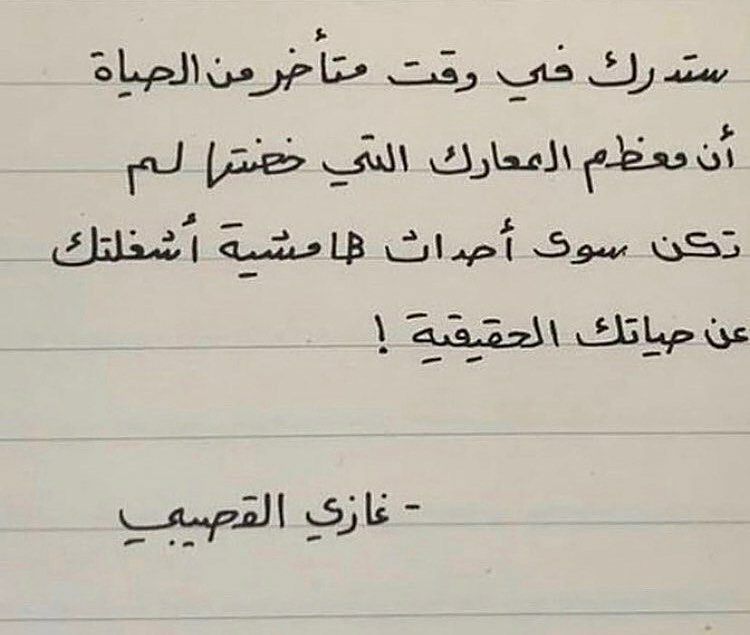 ستدرك في وقت متأخر من الحياة
أن معظم المعارك التي خضتها لم
تكن سوى أحداث هامشية أشغلتك
عن حياتك الحقيقية !
- غازي القصيبي